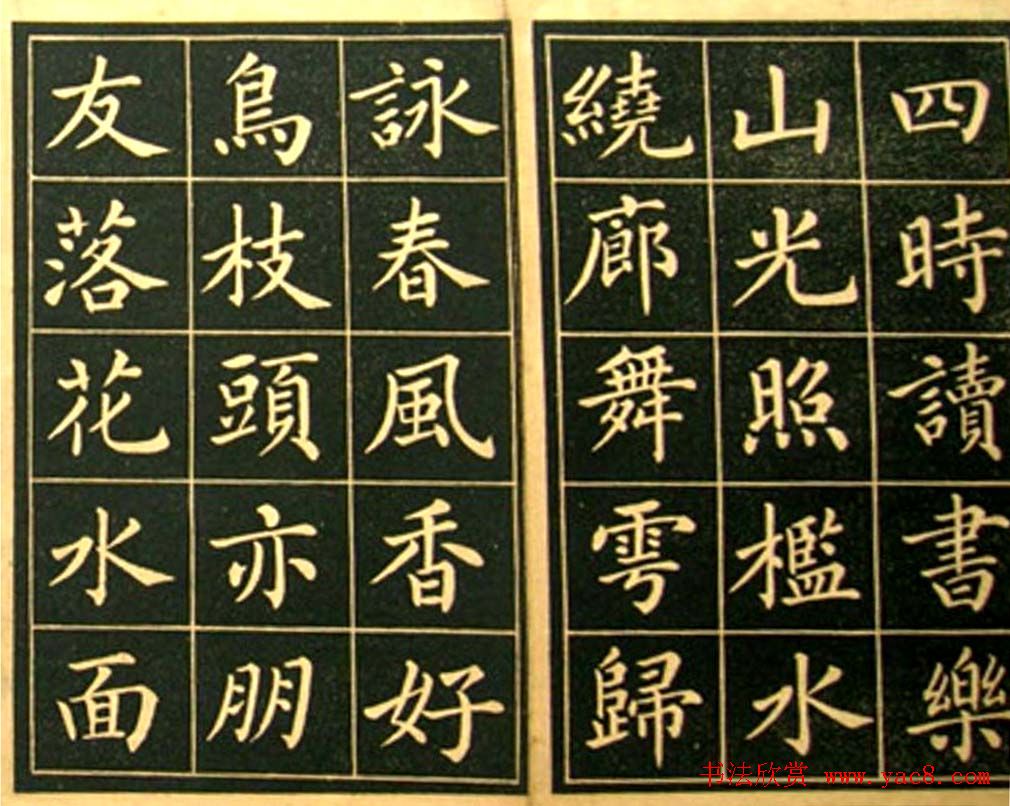 四時讀書樂
山光照檻水
繞廊舞雩歸
詠春風香好
鳥枝頭亦朋
友落花水面
书法欣赏 www.yac8.com